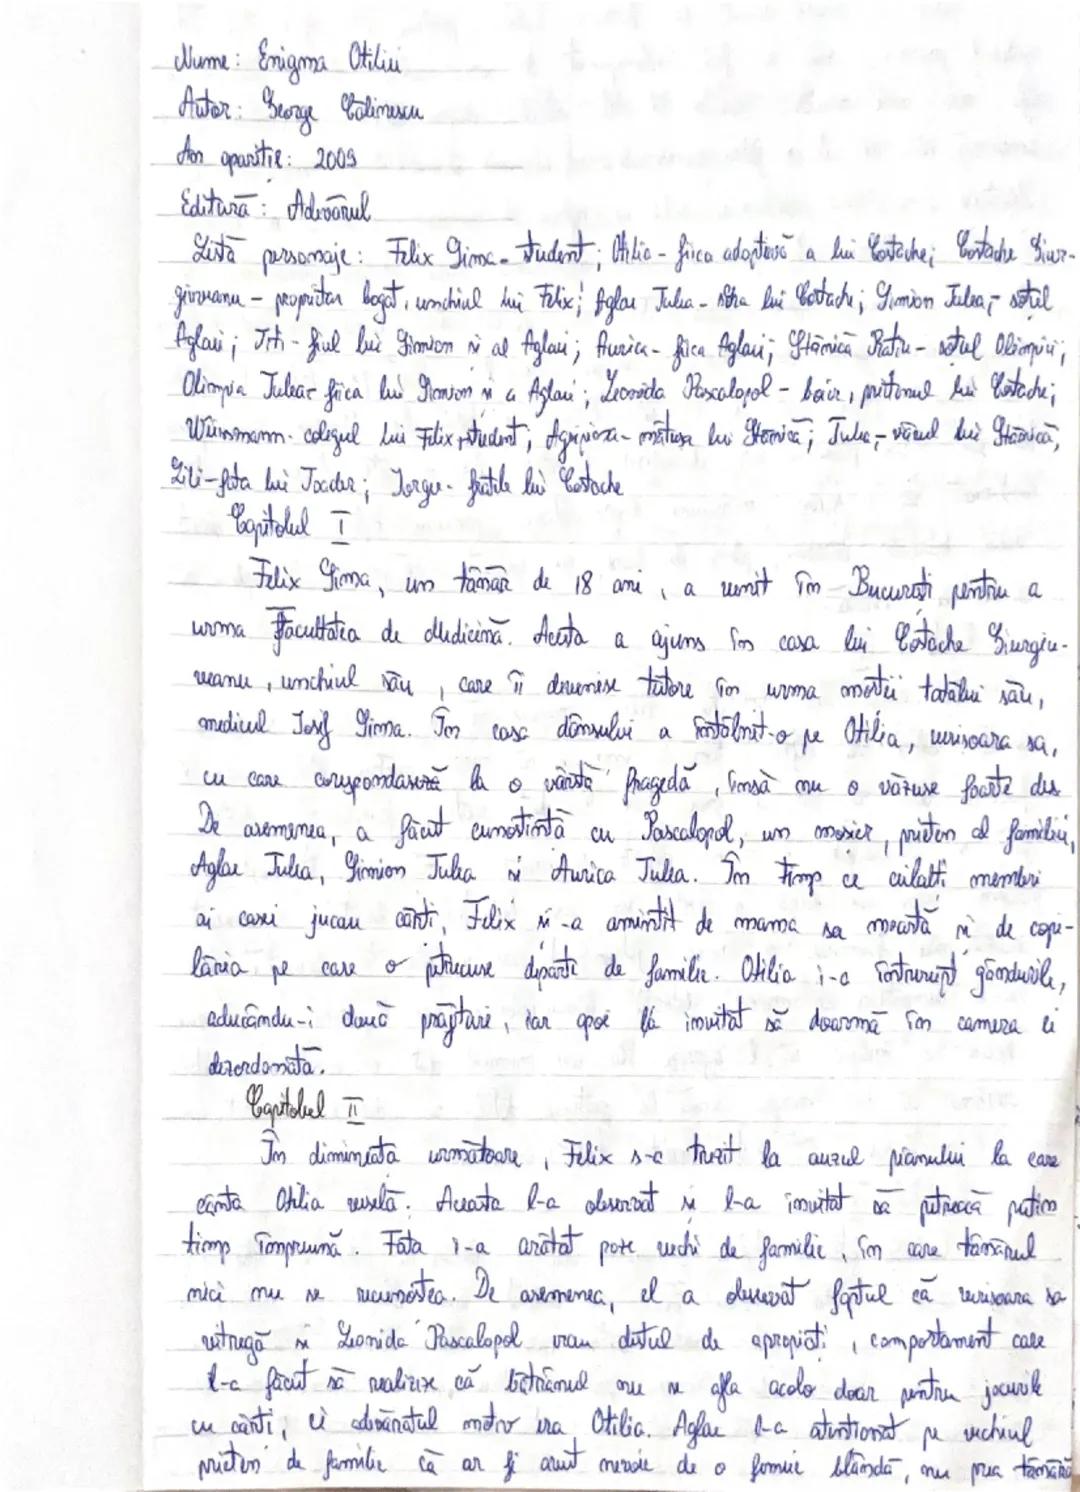 Nume: Enigma Otiliei
Autor: George Călinescu
An apariție: 2009
Editură: Adevărul
Listă personaje: Felix Sima - student; Otilia - fiica adoptivă a lui Costache; Costache Giur-
giuveanu - proprietar bogat, unchiul lui Felix; Aglae Tulea - sora lui Costache; Simion Tulea - soțul
Aglaei; Titi - fiul lui Simion și al Aglaei; Aurica - fiica Aglaei; Stănică Rațiu - soțul Olimpiei;
Olimpia Tulea - fiica lui Simion și a Aglaei; Leonida Pascalopol - boier, prietenul lui Costache;
Weissmann - colegul lui Felix, student; Agripina - mătușa lui Stănică; - vărul lui Stănică;
Lili - fata lui Toader; Iorgu - fratele lui Costache
Capitolul I
Felix Sima, un tânăr de 18 ani, a venit în București pentru a
urma Facultatea de Medicină. Acesta a ajuns în casa lui Costache Giurgiu-
veanu, unchiul său, care îi devenise tutore în urma morții tatălui său,
medicul Iosif Sima. În casa dânsului a întâlnit-o pe Otilia, verișoara sa,
cu care corespondaseră la o vârstă fragedă, însă nu o văzuse foarte des.
De asemenea, a făcut cunoștință cu Pascalopol, un moșier, prieten al familiei,
Aglae Tulea, Simion Tulea și Aurica Tulea. În timp ce ceilalți membri
ai casei jucau cărți, Felix și-a amintit de mama sa moartă și de copi-
lăria pe care o petrecuse departe de familie. Otilia i-a întrerupt gândurile,
aducându-i două prăjituri, iar apoi l-a invitat să doarmă în camera ei
dezordonată.
Capitolul II
În dimineața următoare, Felix s-a trezit la auzul pianului la care
cânta Otilia veselă. Aceasta l-a observat și l-a invitat să petreacă puțin
timp împreună. Fata i-a arătat poze vechi de familie, în care tânărul
nici nu se recunoștea. De asemenea, el a observat faptul că verișoara sa
vitregă și Leonida Pascalopol erau destul de apropiați, comportament care
l-a făcut să realizeze că bătrânul nu se afla acolo doar pentru jocurile
cu cărți, ci adevăratul motiv era Otilia. Aglae l-a atenționat pe vechiul
prieten de familie că ar fi avut nevoie de o femeie blândă, nu prea tânără